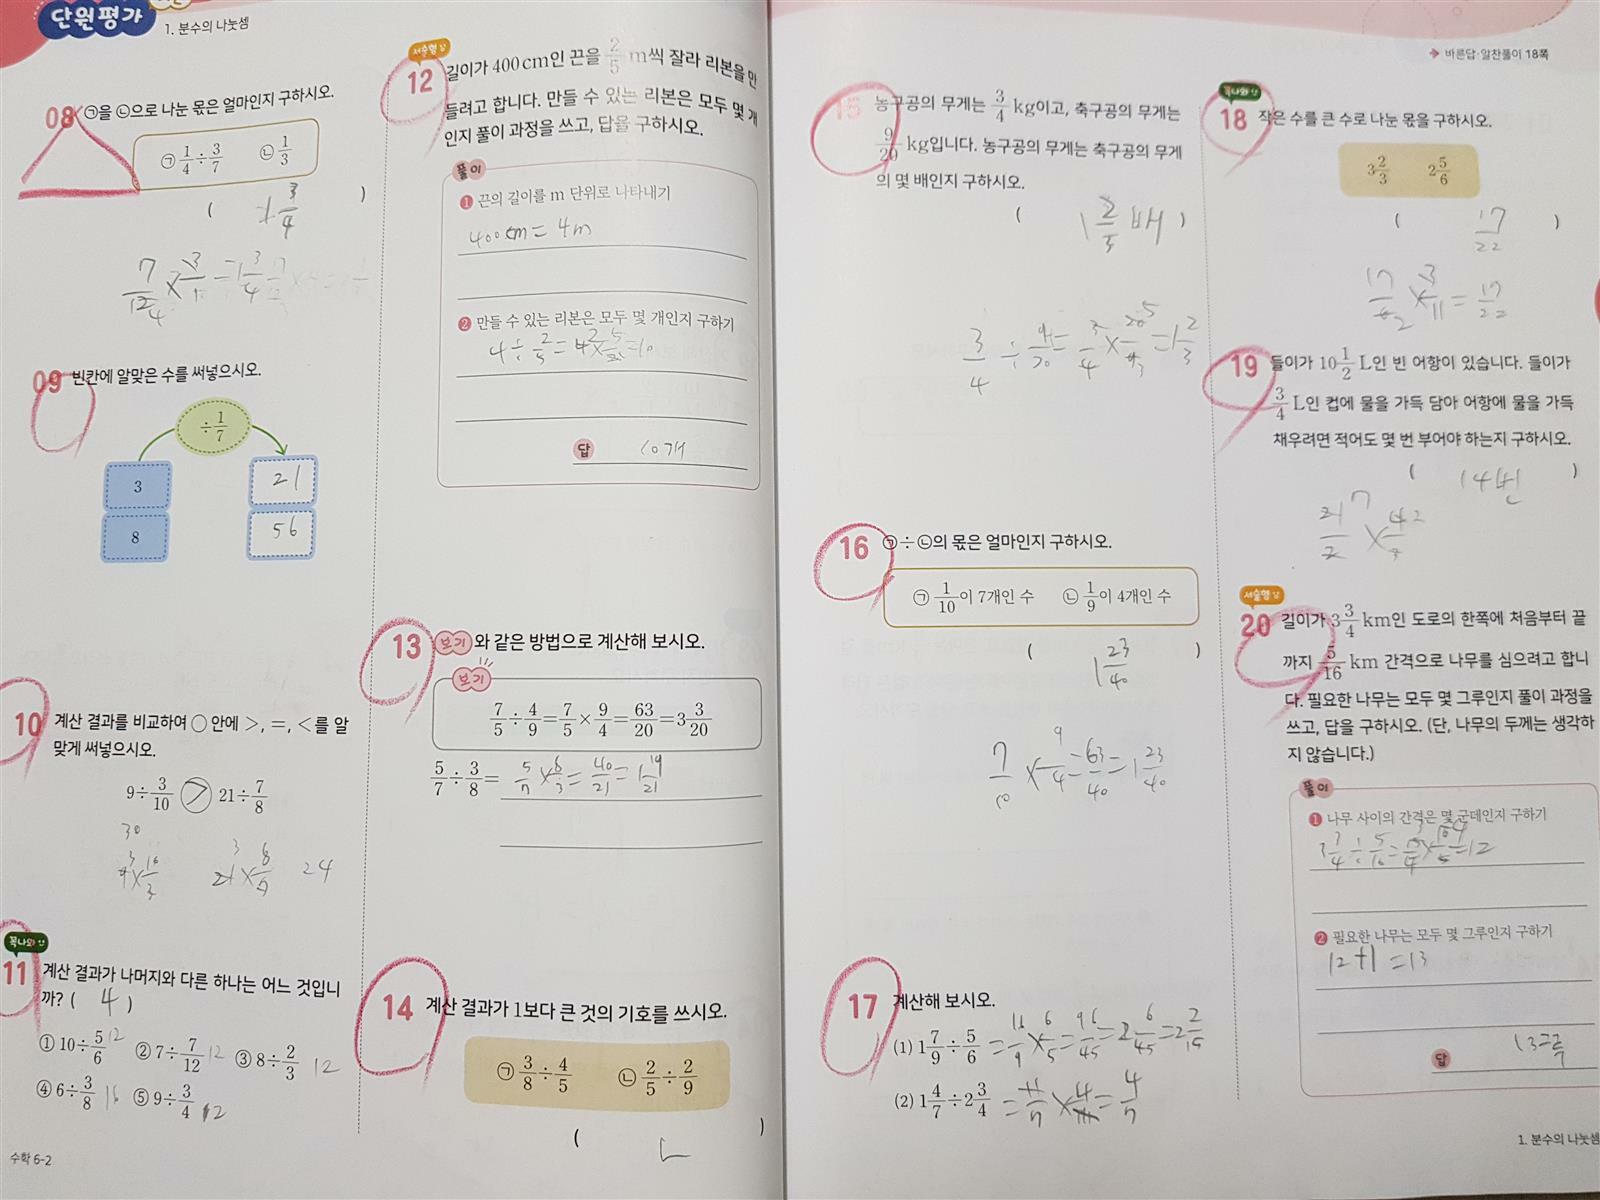 단원평가
1. 분수의 나눗셈
08 ㉠을 ㉡으로 나눈 몫은 얼마인지 구하시오.
㉠ 1/4÷3/7 ㉡ 1/3
( 3/4 )
7/12 × 3/1 = 1 3/4
09 빈칸에 알맞은 수를 써넣으시오.
÷1/7
3 21
8 56
10 계산 결과를 비교하여 ○ 안에 >, =, <를 알
맞게 써넣으시오.
9÷3/10 > 21÷7/8
30
24
꼭나와
11 계산 결과가 나머지와 다른 하나는 어느 것입니
까? ( 4 )
① 10÷5/6 12 ② 7÷7/12 12 ③ 8÷2/3 12
④ 6÷3/8 16 ⑤ 9÷3/4 12
수학 6-2
서술형
12 길이가 400 cm인 끈을 2/5 m씩 잘라 리본을 만
들려고 합니다. 만들 수 있는 리본은 모두 몇 개
인지 풀이 과정을 쓰고, 답을 구하시오.
풀이
❶ 끈의 길이를 m 단위로 나타내기
400cm = 4m
❷ 만들 수 있는 리본은 모두 몇 개인지 구하기
4÷2/5=4×5/2=10
답 10개
13 보기와 같은 방법으로 계산해 보시오.
보기
7/5÷4/9=7/5×9/4=63/20=3 3/20
5/7÷3/8= 5/7×8/3=40/21=1 19/21
14 계산 결과가 1보다 큰 것의 기호를 쓰시오.
㉠ 3/8÷4/5 ㉡ 2/5÷2/9
( ㄴ )
바른답·알찬풀이 18쪽
15 농구공의 무게는 3/4 kg이고, 축구공의 무게는
9/20 kg입니다. 농구공의 무게는 축구공의 무게
의 몇 배인지 구하시오.
( 1 2/3 배 )
3/4÷9/20=3/4×20/9=1 2/3
16 ㉠÷㉡의 몫은 얼마인지 구하시오.
㉠ 1/10이 7개인 수 ㉡ 1/9이 4개인 수
( 1 23/40 )
7/10×9/4=63/40=1 23/40
17 계산해 보시오.
(1) 1 7/9÷5/6 =16/9×6/5=96/45=2 6/45=2 2/15
(2) 1 4/7÷2 3/4 =11/7×4/11=4/7
꼭나와
18 작은 수를 큰 수로 나눈 몫을 구하시오.
3 2/3 2 5/6
( 17/22 )
17/6×3/11=17/22
19 들이가 10 1/2 L인 빈 어항이 있습니다. 들이가
3/4 L인 컵에 물을 가득 담아 어항에 물을 가득
채우려면 적어도 몇 번 부어야 하는지 구하시오.
( 14번 )
21/2×4/3
서술형
20 길이가 3 3/4 km인 도로의 한쪽에 처음부터 끝
까지 5/16 km 간격으로 나무를 심으려고 합니
다. 필요한 나무는 모두 몇 그루인지 풀이 과정을
쓰고, 답을 구하시오. (단, 나무의 두께는 생각하
지 않습니다.)
풀이
❶ 나무 사이의 간격은 몇 군데인지 구하기
3 3/4÷5/16=15/4×16/5=12
❷ 필요한 나무는 모두 몇 그루인지 구하기
12+1=13
답 13그루
1. 분수의 나눗셈